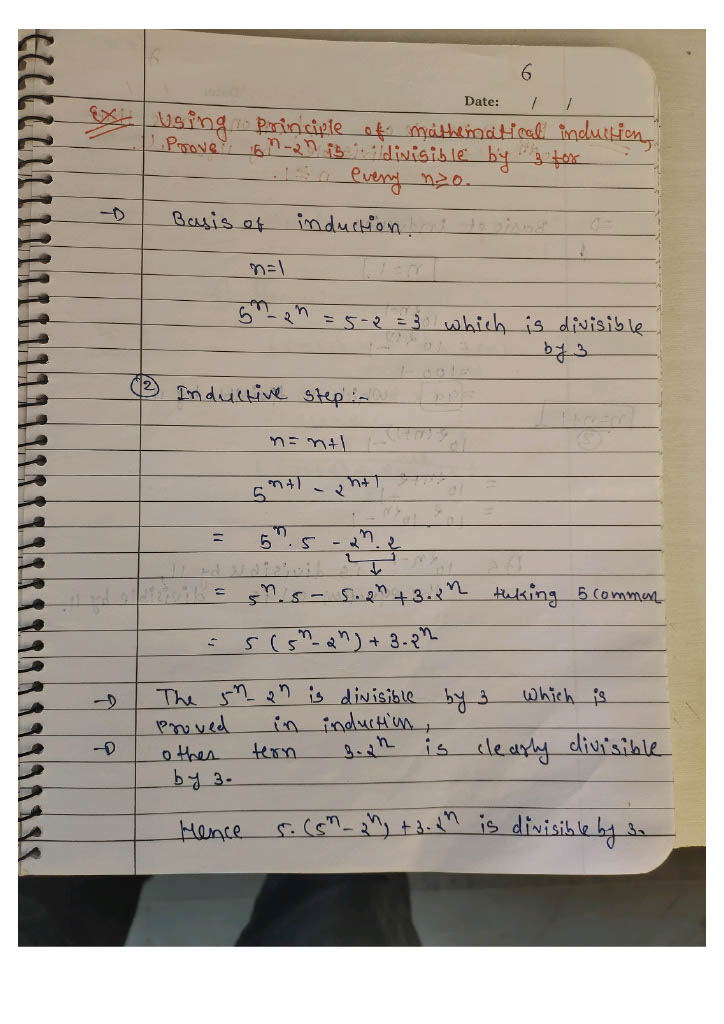 6
Date: / /
Ex Using Principle of mathematical induction,
Prove 5ⁿ-2ⁿ is divisible by 3 for
every n≥0.
→ Basis of induction.
n=1
5ⁿ-2ⁿ = 5-2 = 3 which is divisible
by 3
② Inductive step :-
n= n+1
5ⁿ⁺¹ - 2ⁿ⁺¹
= 5ⁿ. 5 - 2ⁿ. 2
= 5ⁿ.5 - 5.2ⁿ + 3.2ⁿ taking 5 common
= 5 (5ⁿ-2ⁿ) + 3.2ⁿ
→ The 5ⁿ-2ⁿ is divisible by 3 which is
proved in induction,
→ other term 3.2ⁿ is clearly divisible
by 3.
Hence 5.(5ⁿ-2ⁿ) +3.2ⁿ is divisible by 3.